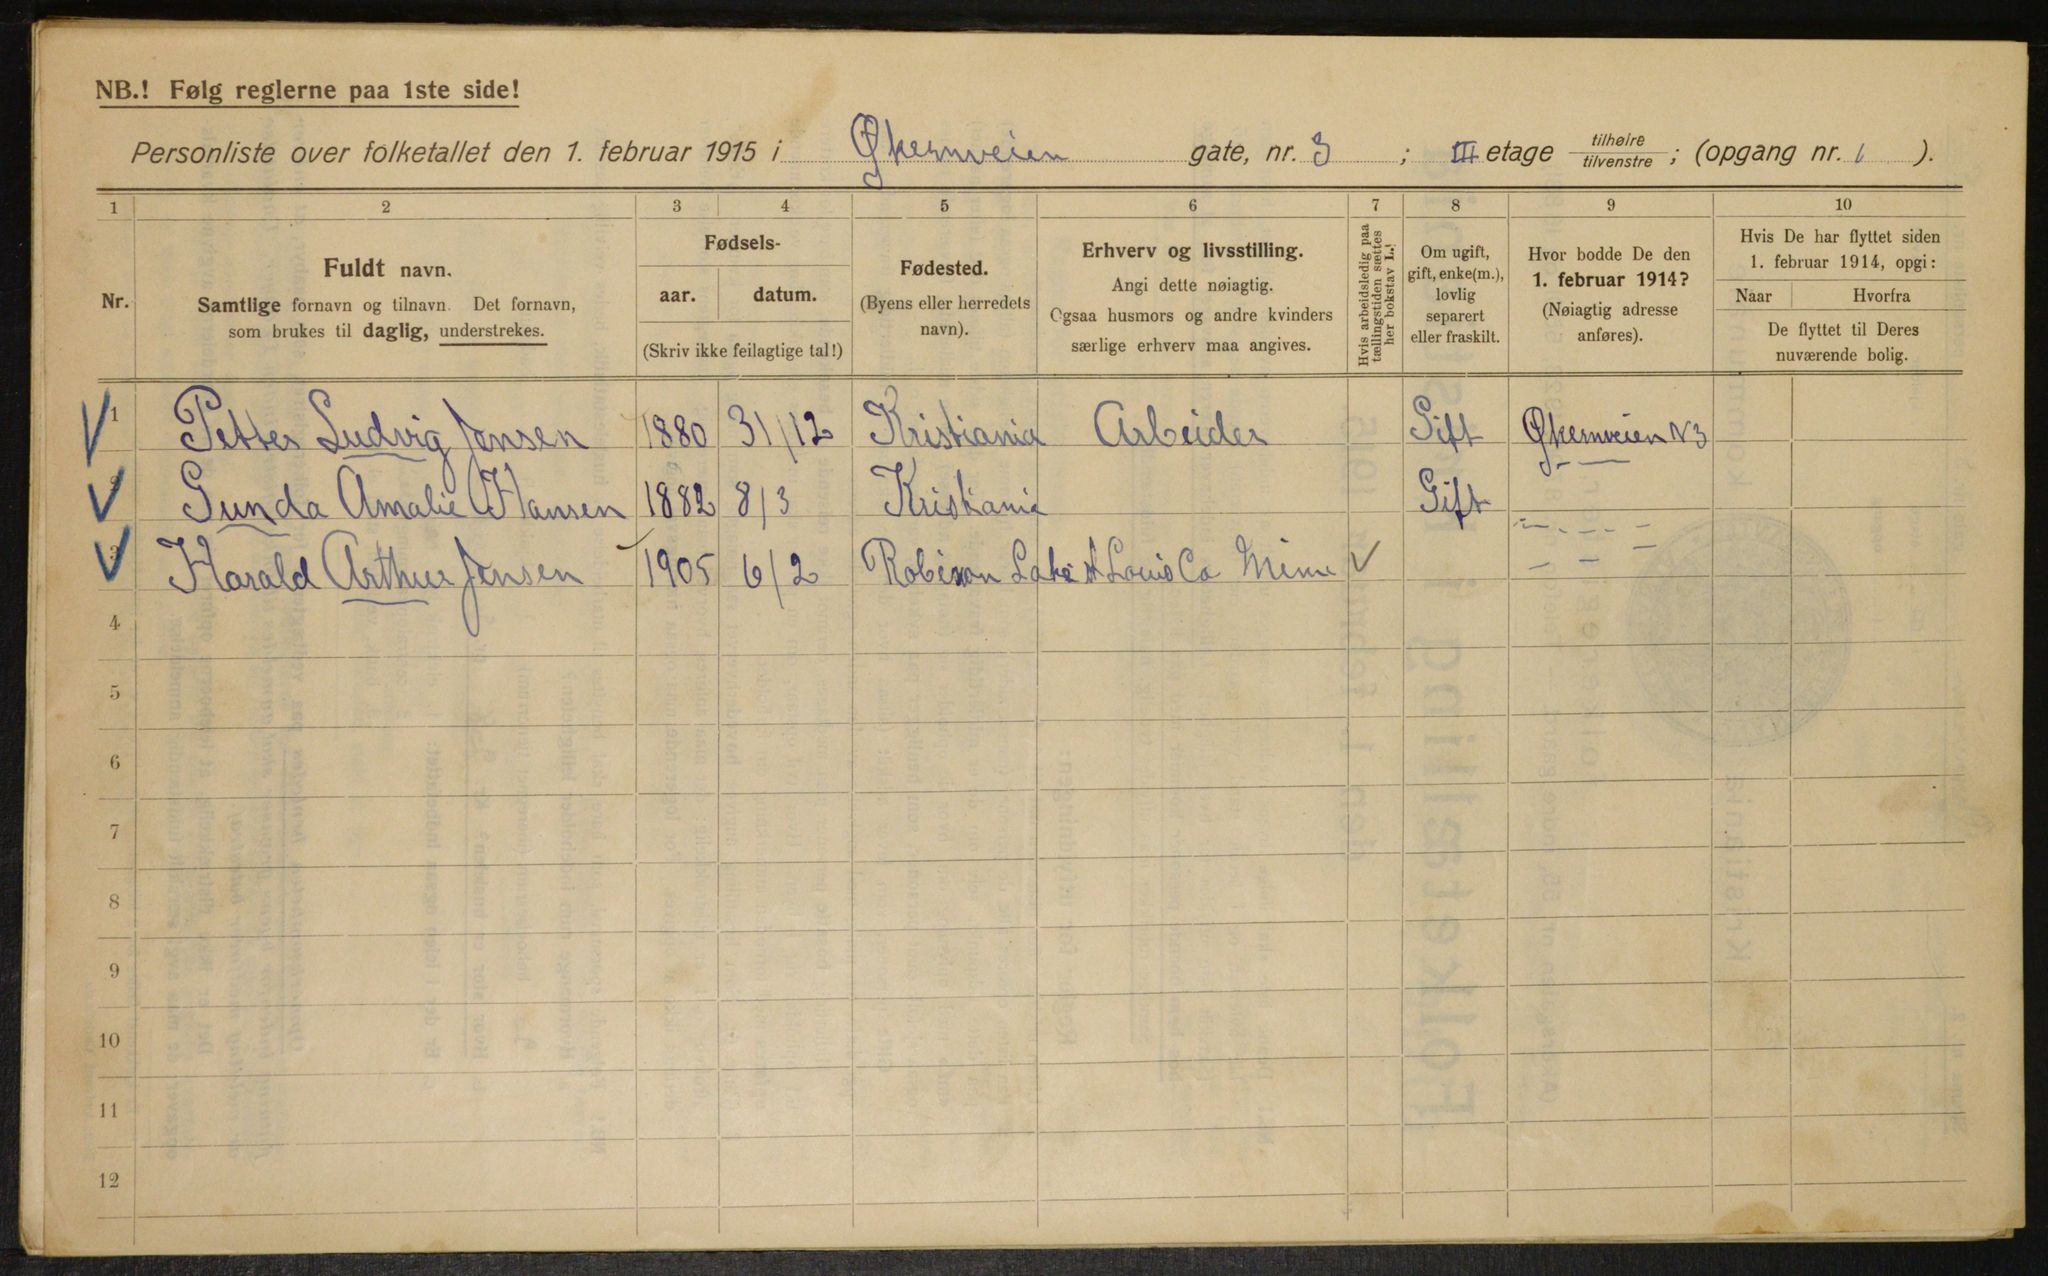 NB.! Følg reglerne paa 1ste side!
Personliste over folketallet den 1. februar 1915 i Økernveien gate, nr. 3 ; III etage tilhøire tilvenstre ; (opgang nr. 1 ).
1 2 3 4 5 6 7 8 9 10
Nr.
Fuldt navn.
Samtlige fornavn og tilnavn. Det fornavn,
som brukes til daglig, understrekes.
Fødsels-
aar. datum.
(Skriv ikke feilagtige tal!)
Fødested.
(Byens eller herredets
navn).
Erhverv og livsstilling.
Angi dette nøiagtig.
Ogsaa husmors og andre kvinders
særlige erhverv maa angives.
Hvis arbeidsledig paa
tællingstiden sættes
her bokstav L.!
Om ugift,
gift, enke(m.),
lovlig
separert
eller fraskilt.
Hvor bodde De den
1. februar 1914?
(Nøiagtig adresse
anføres).
Hvis De har flyttet siden
1. februar 1914, opgi:
Naar Hvorfra
De flyttet til Deres
nuværende bolig.
1 Petter Ludvig Jensen 1880 31/12 Kristiania Arbeider Gift Økernveien N 3
2 Gunda Amalie Hansen 1882 8/3 Kristiania Gift
3 Harald Arthur Jensen 1905 6/2 Robinson Lake St Louis Co Minn
4
5
6
7
8
9
10
11
12